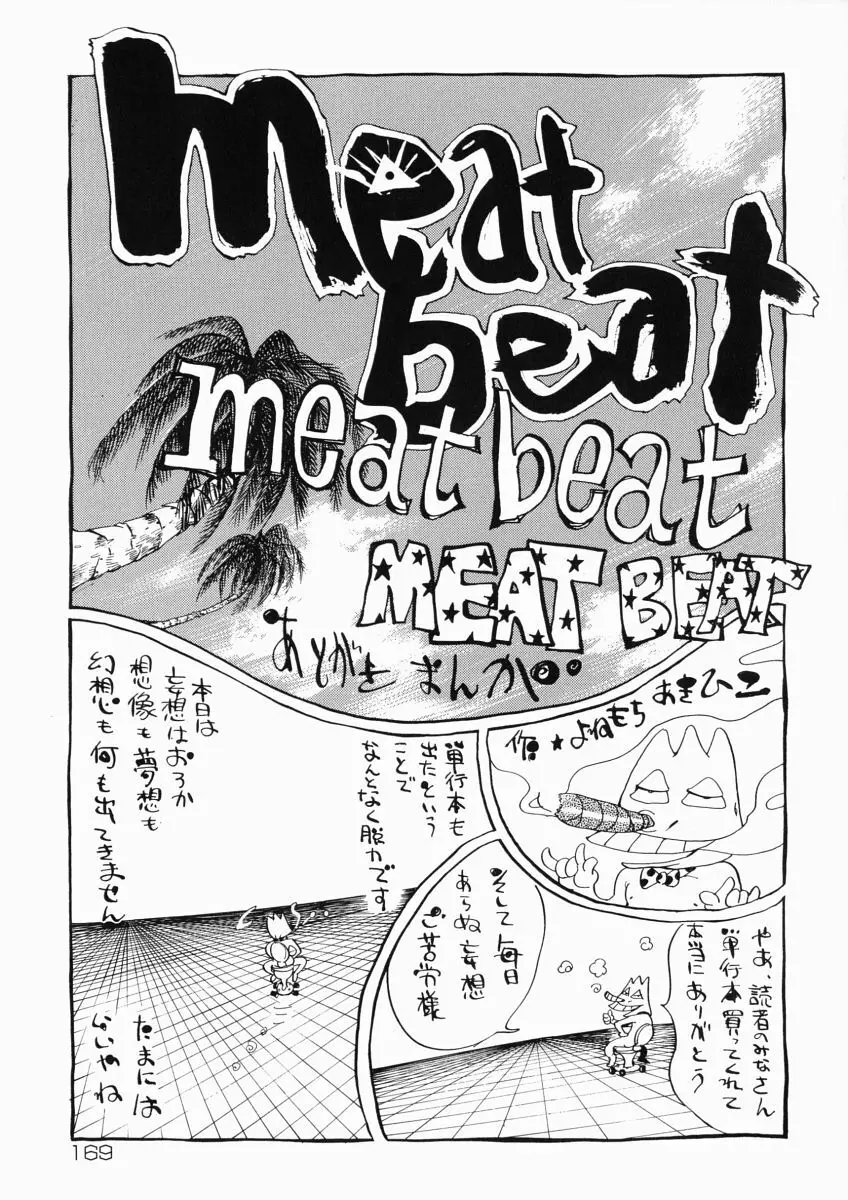 meat
beat
meat beat
MEAT BEAT
あとがきまんが
作★よねもちあきひこ
やあ、読者のみなさん
単行本買ってくれて
本当にありがとう
そして毎日
あらぬ妄想
ご苦労様
単行本も
出たという
ことで
なんとなく脱力です
本日は
妄想はおろか
想像も夢想も
幻想も何も出てきません
たまには
いやね
169